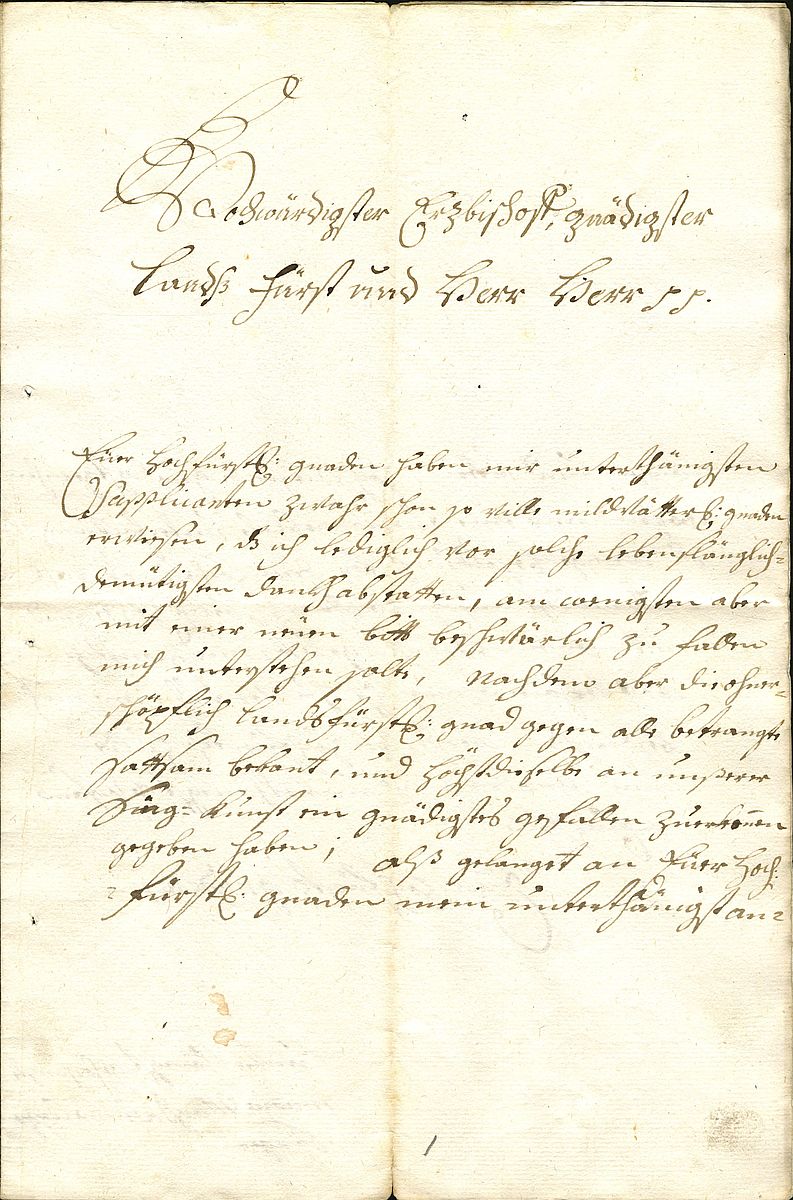 Hochwürdigster Erzbischoff, gnädigster
Landß Fürst und Herr Herr pp.
Euer Hochfürstl: gnaden haben mir unterthänigsten
Supplicanten zwahr schon so ville mildvätterl: gnaden
erwiesen, dß ich lediglich vor solche lebenslänglich=
demütigsten danckh abstatten, am wenigsten aber
mit einer neüen bitt beschwärlich zu fallen
mich unterstehen solte, Nachdem aber die ohner=
schöpflich Landsfürstl: gnad gegen alle betrangte
sattsam bekant, und Höchstdieselbe an unßerer
Sing= Kunst ein gnädigstes gefallen zuerkennen
gegeben haben; alß gelanget an Euer Hoch:
=Fürstl: gnaden mein unterthänigst an=
1